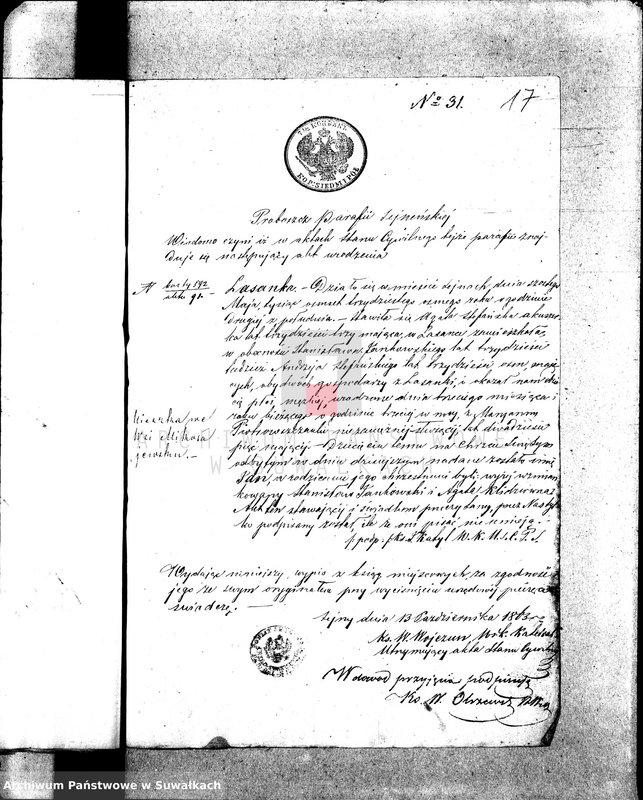 No 31. 17
7½ КОПѢЕКЪ
KOP: SIEDM I PÓŁ
Proboszcz Parafii Sejneńskiej
Wiadomo czyni iż w aktach Stanu Cywilnego tejże parafii znaj-
duje się następujący akt urodzenia
Łasanka. – Działo się w mieście Sejnach, dnia szóstego
Maja, tysiąc ośmset trzydziestego ósmego roku o godzinie
drugiej z południa. – Stawiła się Agata Stefańska akuszer-
ka lat trzydzieści trzy mająca, w Łasance zamieszkała,
w obecności Stanisława Jankowskiego lat trzydzieści
tudzież Andrzeja Stefańskiego lat trzydzieści ośm, mają-
cych, obydwóch gospodarzy z Łasanki, i okazał nam dzie-
cię płci męzkiej, urodzone dnia trzeciego miesiąca i
roku bieżącego o godzinie trzeciej w nocy, z Maryanny
niezamężnej służącej, lat dwadzieścia
pięć mającej. – Dziecięciu temu na Chrzcie Świętym
odbytym w dniu dzisiejszym nadane zostało imię
Jan, a rodzicami jego chrzestnemi byli: wyżej wzmian-
kowany Stanisław Jankowski i Agata
Akt ten stawającej i świadkom przeczytany, przez Nas tyl-
ko podpisany został, ile że oni pisać nie umieją. –
Mieszka we
Wsi Mikoła
jewsku. –
Wydając niniejszy wypis z ksiąg miejscowych, za zgodność
jego ze swym oryginałem przy wyciśnięciu urzędowej pieczęci
świadczę. –
Sejny dnia 13 Października 1863 r.
Utrzymujący akta Stanu Cywilnego
W dowód przyjęcia podpisuję
Archiwum Państwowe w Suwałkach